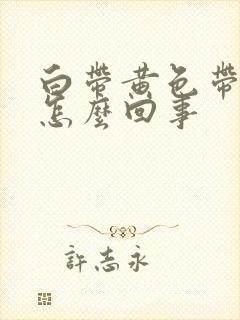 白帶黃色帶
怎麼回事
許志永